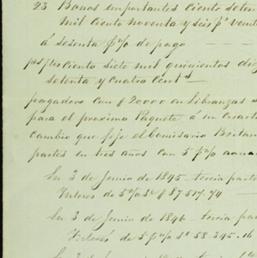 23 Bonos importantes Ciento Seten
mil Ciento noventa y seis ps. veint
á Sesenta p% de pago
ps/ps Ciento siete mil quinientos diez
setenta y cuatro Cents
pagaderos con $ 20000 en Libranzas
para el proximo Paquete á un cuarto
cambio que fije el Comisario Britan
partes en tres años con 5 p% anua
En 3 de Junio de 1845 tercia part
Yntereses de 5% 37517.74
En 3 de Junio de 1846 tercia par
de 5 p% 58.345.16
En 3 de Junio